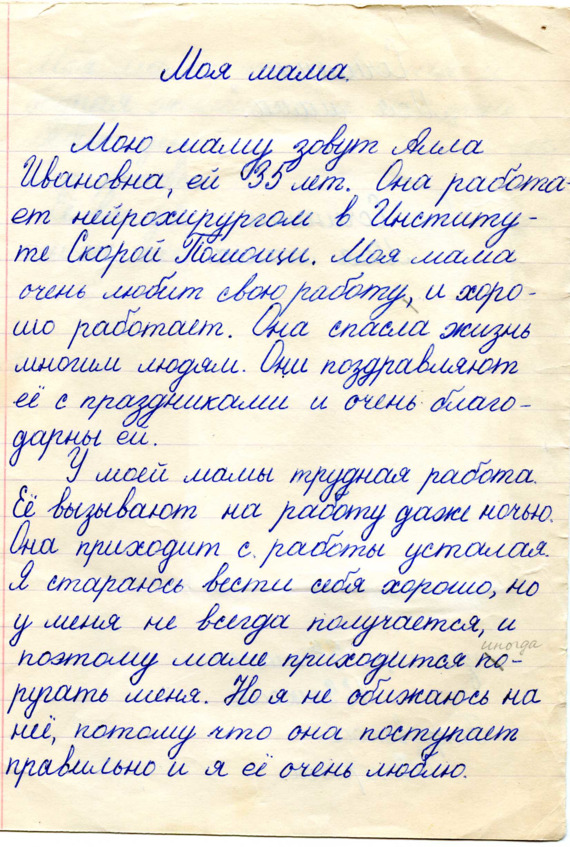 Моя мама.
Мою маму зовут Алла
Ивановна, ей 35 лет. Она работа-
ет нейрохирургом в Институ-
те Скорой Помощи. Моя мама
очень любит свою работу, и хоро-
шо работает. Она спасла жизнь
многим людям. Они поздравляют
её с праздниками и очень благо-
дарны ей.
У моей мамы трудная работа.
Её вызывают на работу даже ночью.
Она приходит с работы усталая.
Я стараюсь вести себя хорошо, но
у меня не всегда получается, и
иногда
поэтому маме приходится по-
ругать меня. Но я не обижаюсь на
неё, потому что она поступает
правильно и я её очень люблю.